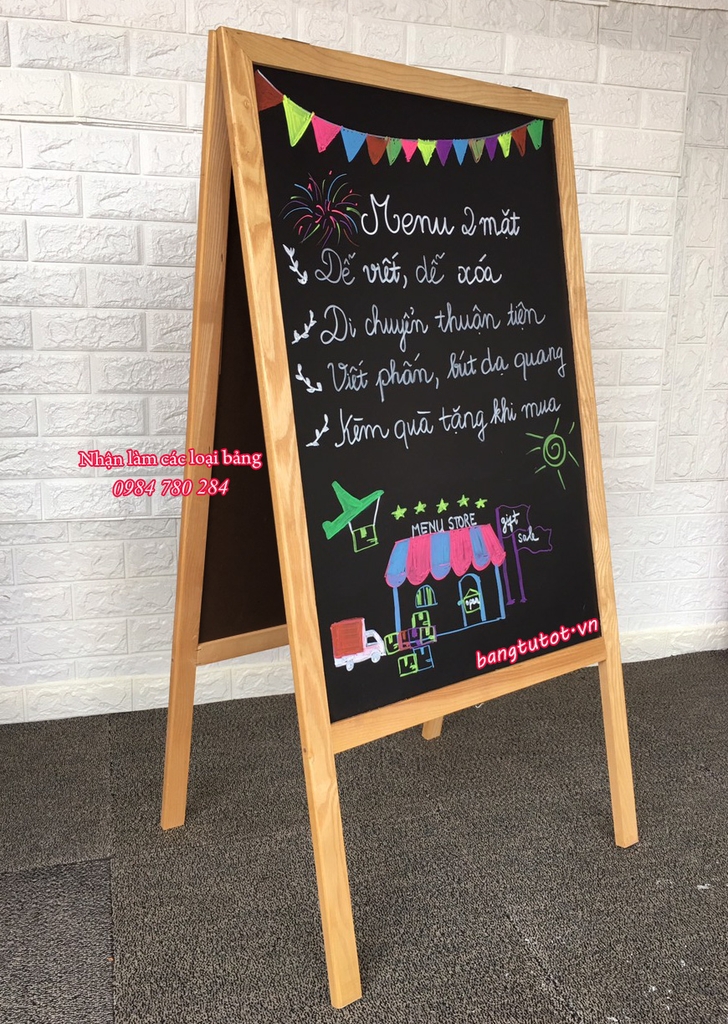 Menu 2 mặt
Dễ viết, dễ xóa
Di chuyển thuận tiện
Viết phấn, bút dạ quang
Kèm quà tặng khi mua
Nhận làm các loại bảng
0984 780 284
MENU STORE
gift
sale
open
bangtutot.vn